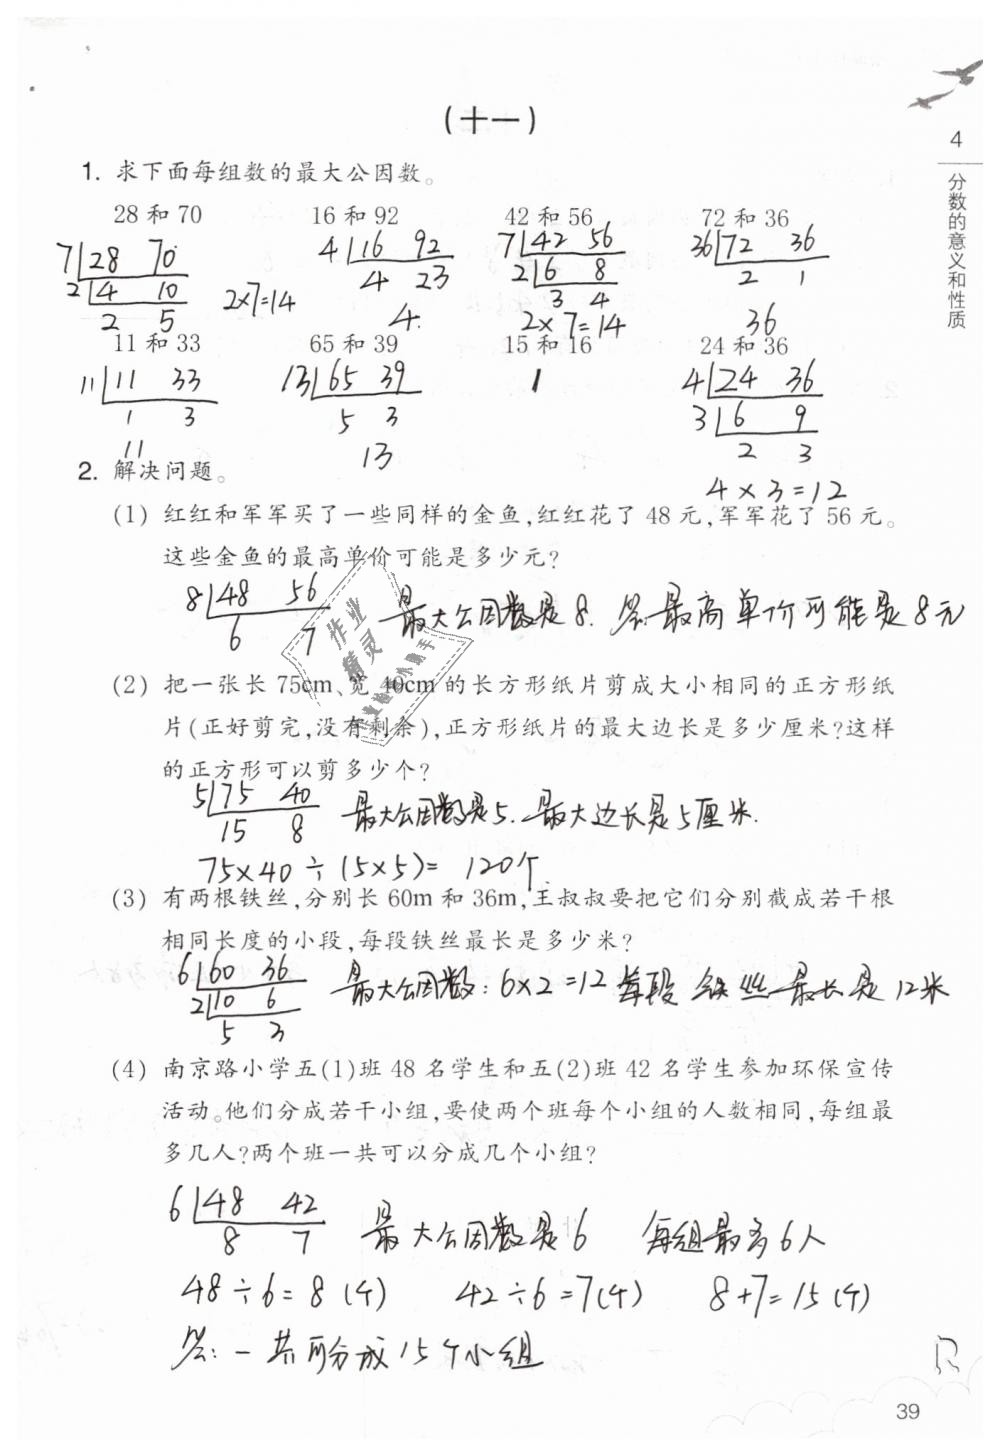 (十一)
4
分数的意义和性质
1. 求下面每组数的最大公因数。
28 和 70 16 和 92 42 和 56 72 和 36
7 28 70 4 16 92 7 42 56 36 72 36
2 4 10 2×7=14 4 23 2 6 8 2 1
2 5 4. 3 4 36
2×7=14
11 和 33 65 和 39 15 和 16 24 和 36
11 11 33 13 65 39 1 4 24 36
1 3 5 3 3 6 9
11 13 2 3
4×3=12
2. 解决问题。
(1) 红红和军军买了一些同样的金鱼,红红花了 48 元,军军花了 56 元。
这些金鱼的最高单价可能是多少元?
8 48 56 最大公因数是8. 答:最高单价可能是8元
6 7
作业
精灵
(2) 把一张长 75cm、宽 40cm 的长方形纸片剪成大小相同的正方形纸
片(正好剪完,没有剩余),正方形纸片的最大边长是多少厘米?这样
的正方形可以剪多少个?
5 75 40 最大公因数是5. 最大边长是5厘米.
15 8
75×40÷(5×5)= 120个.
(3) 有两根铁丝,分别长 60m 和 36m,王叔叔要把它们分别截成若干根
相同长度的小段,每段铁丝最长是多少米?
6 60 36 最大公因数:6×2=12 每段铁丝最长是12米
2 10 6
5 3
(4) 南京路小学五(1)班 48 名学生和五(2)班 42 名学生参加环保宣传
活动。他们分成若干小组,要使两个班每个小组的人数相同,每组最
多几人?两个班一共可以分成几个小组?
6 48 42 最大公因数是6 每组最多6人
8 7
48÷6=8(个) 42÷6=7(个) 8+7=15(个)
答:一共可分成15个小组
39